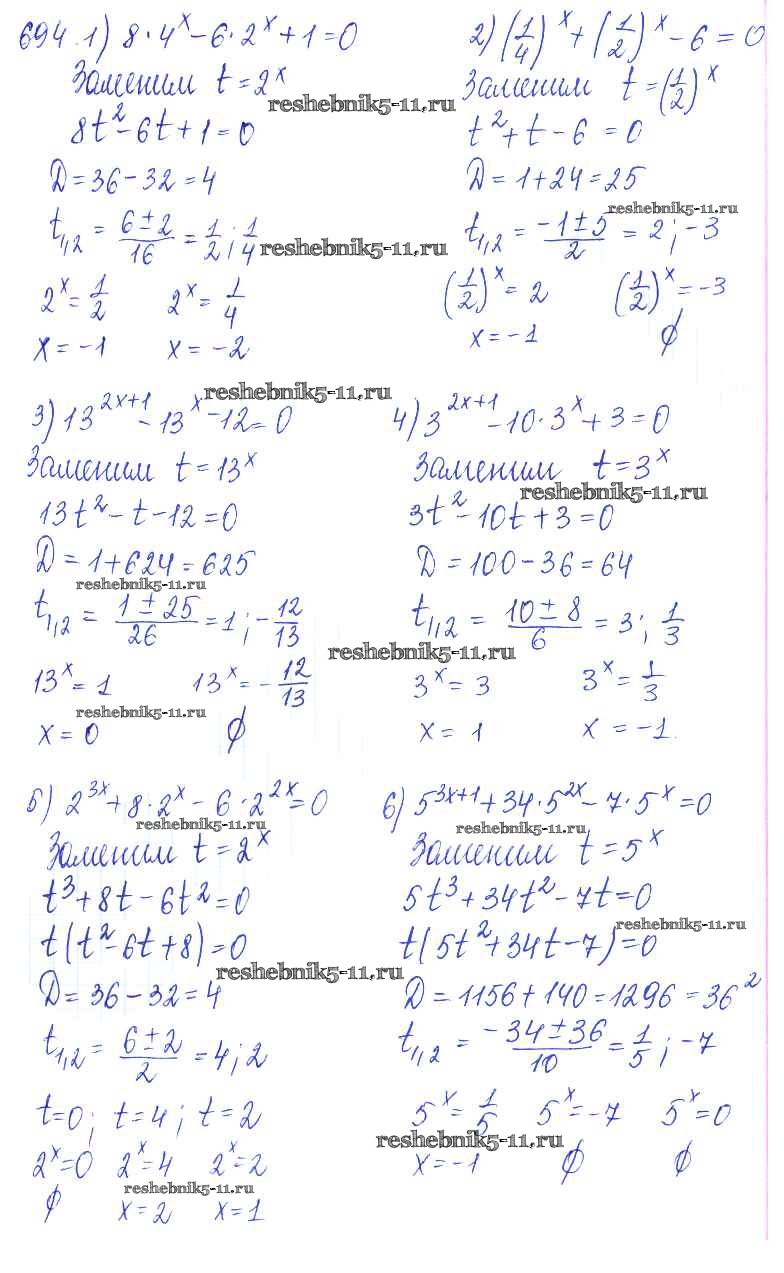 694. 1) 8·4^x − 6·2^x + 1 = 0
Заменим t = 2^x
reshebnik5-11.ru
8t² − 6t + 1 = 0
D = 36 − 32 = 4
t₁,₂ = (6 ± 2)/16 = 1/2; 1/4
reshebnik5-11.ru
2^x = 1/2   2^x = 1/4
x = −1   x = −2
2) (1/4)^x + (1/2)^x − 6 = 0
Заменим t = (1/2)^x
t² + t − 6 = 0
D = 1 + 24 = 25
reshebnik5-11.ru
t₁,₂ = (−1 ± 5)/2 = 2; −3
(1/2)^x = 2   (1/2)^x = −3
x = −1   ∅
reshebnik5-11.ru
3) 13^(2x+1) − 13^x − 12 = 0
Заменим t = 13^x
13t² − t − 12 = 0
D = 1 + 624 = 625
reshebnik5-11.ru
t₁,₂ = (1 ± 25)/26 = 1; −12/13
reshebnik5-11.ru
13^x = 1   13^x = −12/13
reshebnik5-11.ru
x = 0   ∅
4) 3^(2x+1) − 10·3^x + 3 = 0
Заменим t = 3^x
reshebnik5-11.ru
3t² − 10t + 3 = 0
D = 100 − 36 = 64
t₁,₂ = (10 ± 8)/6 = 3; 1/3
3^x = 3   3^x = 1/3
x = 1   x = −1.
5) 2^(3x) + 8·2^x − 6·2^(2x) = 0
reshebnik5-11.ru
Заменим t = 2^x
t³ + 8t − 6t² = 0
t(t² − 6t + 8) = 0
reshebnik5-11.ru
D = 36 − 32 = 4
t₁,₂ = (6 ± 2)/2 = 4; 2
t = 0; t = 4; t = 2
2^x = 0   2^x = 4   2^x = 2
reshebnik5-11.ru
∅   x = 2   x = 1
6) 5^(3x+1) + 34·5^(2x) − 7·5^x = 0
reshebnik5-11.ru
Заменим t = 5^x
5t³ + 34t² − 7t = 0
reshebnik5-11.ru
t(5t² + 34t − 7) = 0
D = 1156 + 140 = 1296 = 36²
t₁,₂ = (−34 ± 36)/10 = 1/5; −7
5^x = 1/5   5^x = −7   5^x = 0
reshebnik5-11.ru
x = −1   ∅   ∅